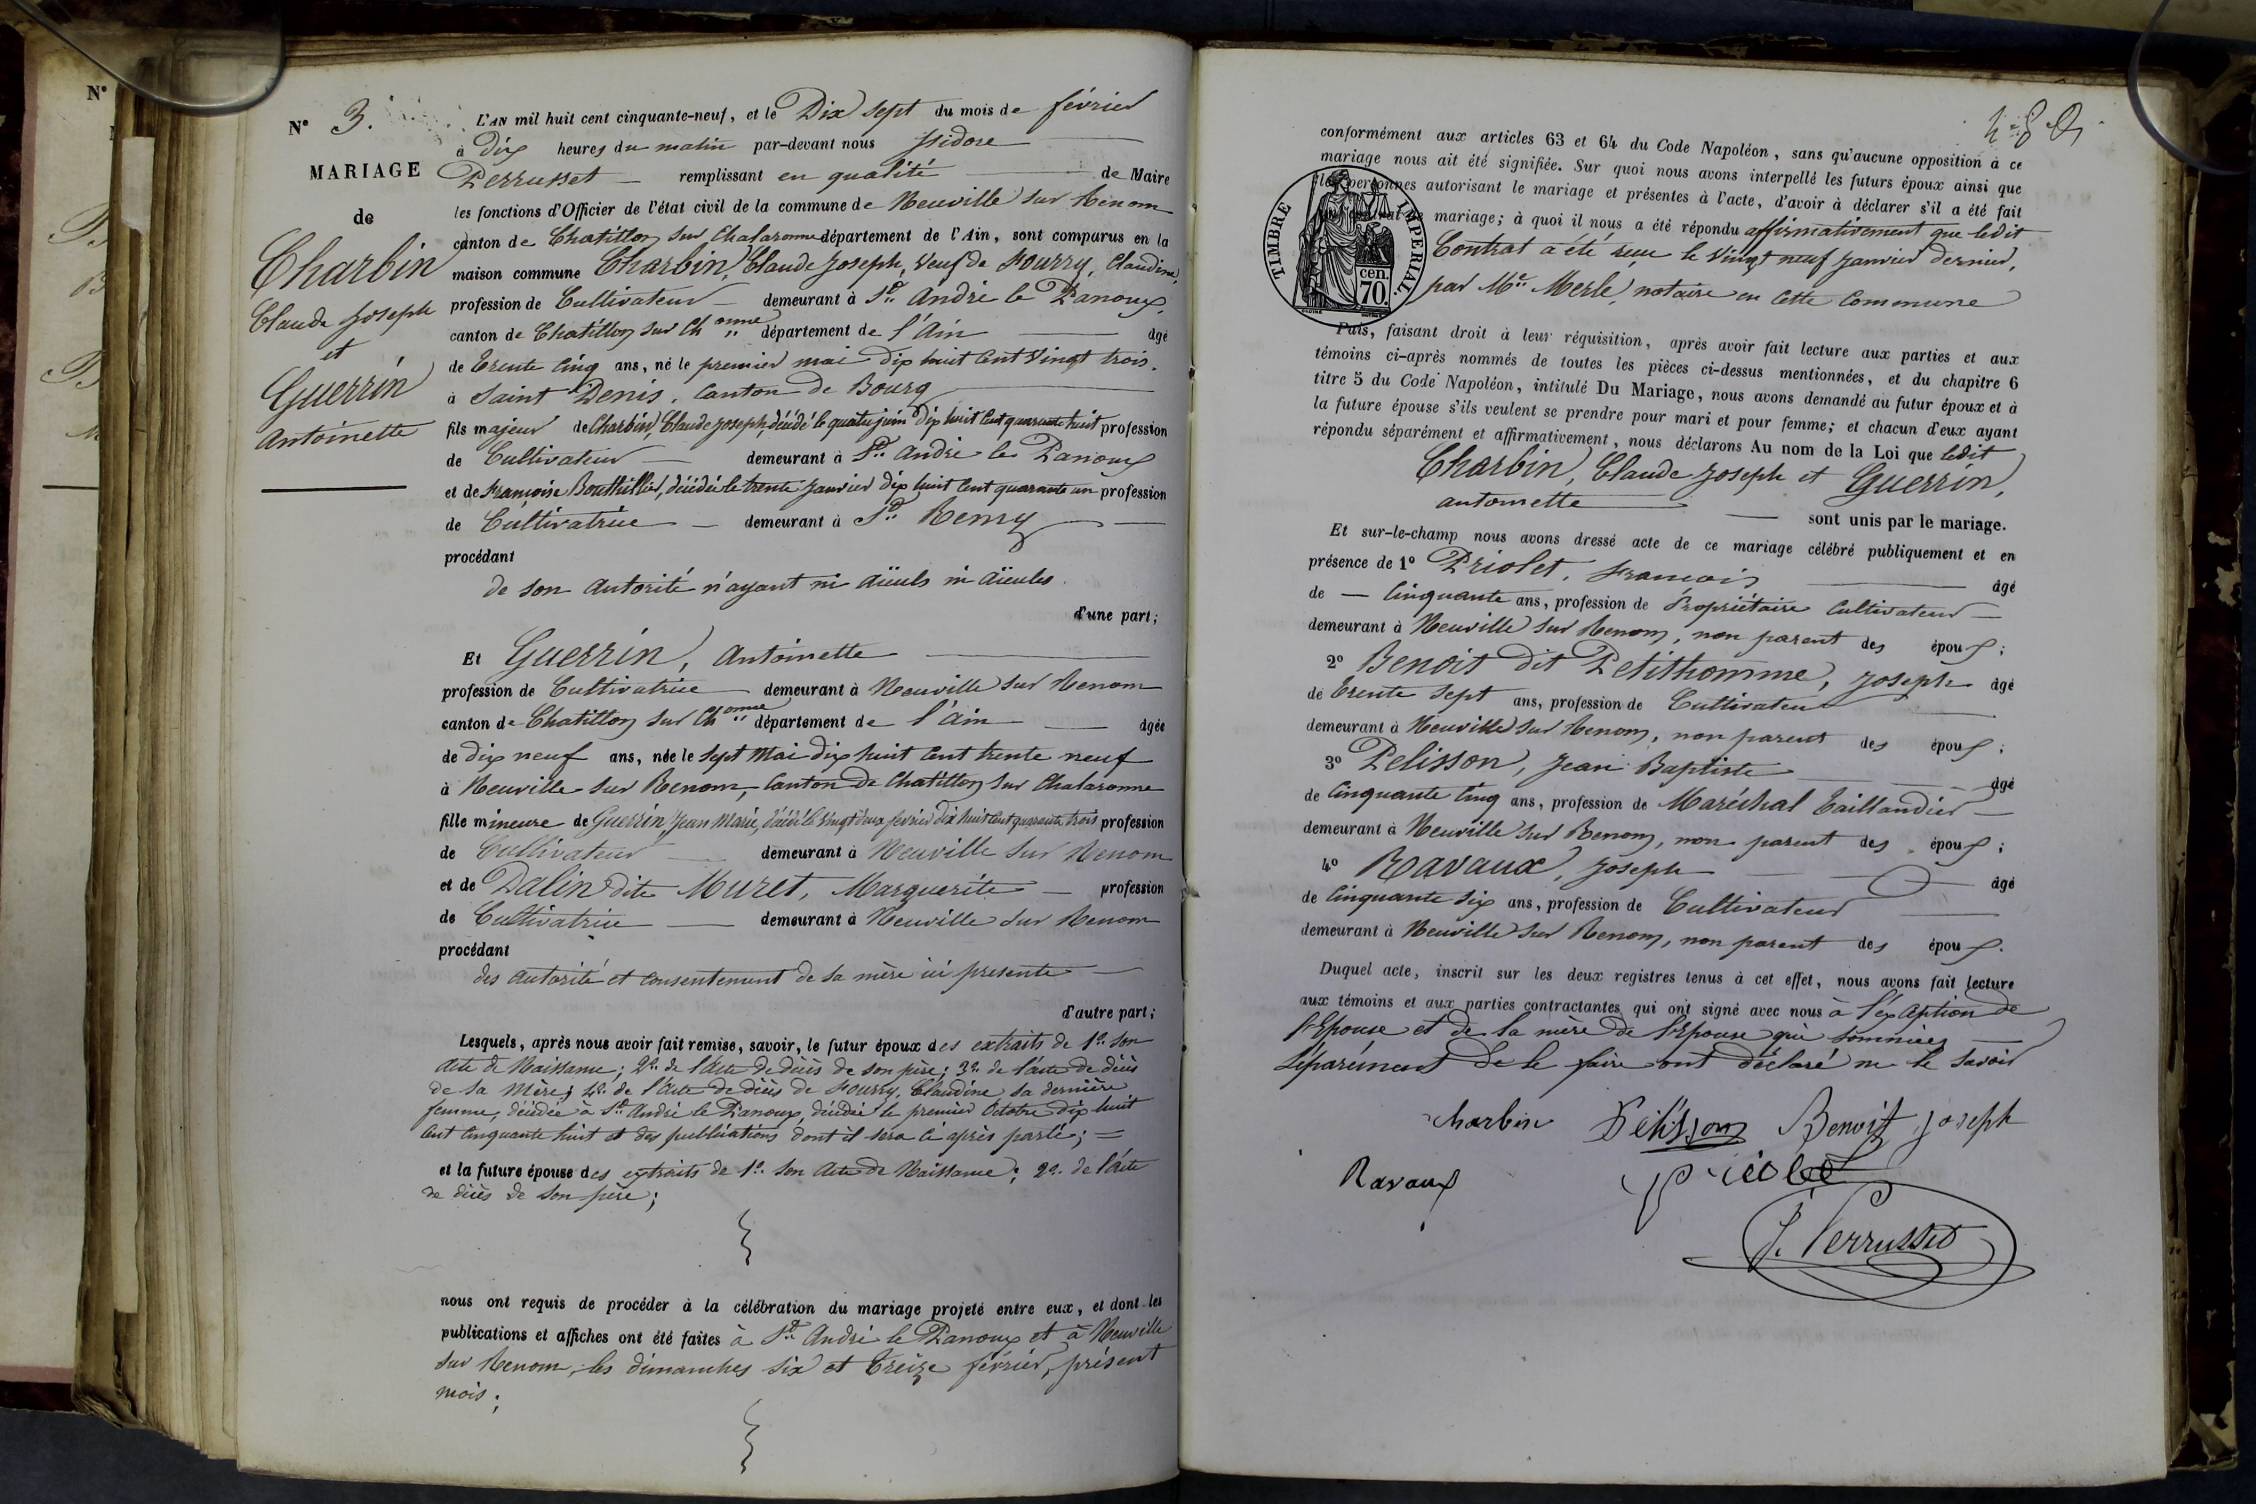 N° 3.
MARIAGE
de
Charbin
Claude Joseph
et
Guerrin
Antoinette
L'AN mil huit cent cinquante-neuf, et le Dix sept du mois de février
à dix heures du matin par-devant nous Isidore
Perrusset remplissant en qualité de Maire
les fonctions d'Officier de l'état civil de la commune de Neuville sur Renom
canton de Chatillon sur Chalaronne département de l'Ain, sont comparus en la
maison commune Charbin, Claude Joseph, veuf de Fourry, Claudine,
profession de Cultivateur demeurant à St. André le Panoux,
canton de Chatillon sur Chonne département de l'Ain âgé
de trente cinq ans, né le premier mai dix huit cent vingt trois.
à Saint Denis, canton de Bourg
fils majeur de Charbin, Claude Joseph, décédé le quatre juin dix huit cent quarante huit profession
de Cultivateur demeurant à St. André le Panoux
et de Françoise Bouthillier, décédée le trente janvier dix huit cent quarante un profession
de Cultivatrice demeurant à St. Remy
procédant
de son autorité n'ayant ni aïeuls ni aïeules.
d'une part;
Et Guerrin, Antoinette
profession de Cultivatrice demeurant à Neuville sur Renom
canton de Chatillon sur Chonne département de l'Ain âgée
de dix neuf ans, née le sept mai dix huit cent trente neuf
à Neuville sur Renom, canton de Chatillon sur Chalaronne
fille mineure de Guerrin Jean Marie, décédé le vingt deux février dix huit cent quarante trois profession
de Cultivateur demeurant à Neuville sur Renom
et de Dalin dite Muret, Marguerite profession
de Cultivatrice demeurant à Neuville sur Renom
procédant
des autorité et consentement de sa mère ici presente
d'autre part;
Lesquels, après nous avoir fait remise, savoir, le futur époux des extraits de 1° son
acte de Naissance; 2° de l'acte de décès de son père; 3° de l'acte de décès
de sa mère; 4° de l'acte de décès de Fourry, Claudine, sa dernière
femme, décédée à St. André le Panoux, décédée le premier octobre dix huit
cent cinquante huit et des publications dont il sera ci après parlé;
et la future épouse des extraits de 1° son acte de Naissance; 2° de l'acte
de décès de son père;
nous ont requis de procéder à la célébration du mariage projeté entre eux, et dont les
publications et affiches ont été faites à St. André le Panoux et à Neuville
sur Renom, les dimanches six et treize février, présent
mois;
conformément aux articles 63 et 64 du Code Napoléon, sans qu'aucune opposition à ce
mariage nous ait été signifiée. Sur quoi nous avons interpellé les futurs époux ainsi que
les personnes autorisant le mariage et présentes à l'acte, d'avoir à déclarer s'il a été fait
mariage; à quoi il nous a été répondu affirmativement que ledit
Contrat a été reçu le vingt neuf janvier dernier,
par Me Merle, notaire en cette commune
TIMBRE IMPERIAL.
cen.
70.
Puis, faisant droit à leur réquisition, après avoir fait lecture aux parties et aux
témoins ci-après nommés de toutes les pièces ci-dessus mentionnées, et du chapitre 6
titre 5 du Code Napoléon, intitulé Du Mariage, nous avons demandé au futur époux et à
la future épouse s'ils veulent se prendre pour mari et pour femme; et chacun d'eux ayant
répondu séparément et affirmativement, nous déclarons Au nom de la Loi que ledit
Charbin, Claude Joseph et Guerrin,
antoinette
sont unis par le mariage.
Et sur-le-champ nous avons dressé acte de ce mariage célébré publiquement et en
présence de 1° Priolet, François âgé
de cinquante ans, profession de Propriétaire Cultivateur
demeurant à Neuville sur Renom, non parent des époux;
2° Benoit dit Petithomme, Joseph âgé
de trente sept ans, profession de Cultivateur
demeurant à Neuville sur Renom, non parent des époux;
3° Pelisson, Jean Baptiste âgé
de cinquante cinq ans, profession de Maréchal Taillandier
demeurant à Neuville sur Renom, non parent des époux;
4° Ravaux, Joseph âgé
de cinquante six ans, profession de Cultivateur
demeurant à Neuville sur Renom, non parent des époux.
Duquel acte, inscrit sur les deux registres tenus à cet effet, nous avons fait lecture
aux témoins et aux parties contractantes qui ont signé avec nous à l'éxception de
l'Epouse et de la mère de l'Epouse qui sommées
séparément de le faire ont déclaré ne le savoir
Charbin Pelisson Benoit Joseph
Ravaux priolet
J. Perrusset